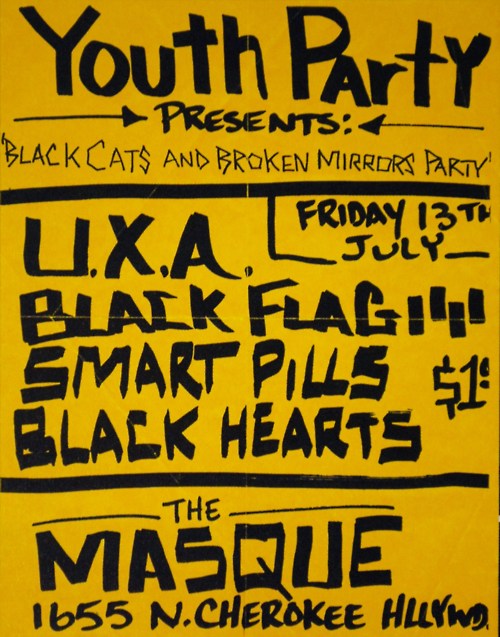 Youth Party
PRESENTS:
'BLACK CATS AND BROKEN MIRRORS PARTY'
U.X.A.
FRIDAY 13TH
JULY
BLACK FLAG
SMART PILLS
$1
BLACK HEARTS
THE
MASQUE
1655 N. CHEROKEE HLLYWD.